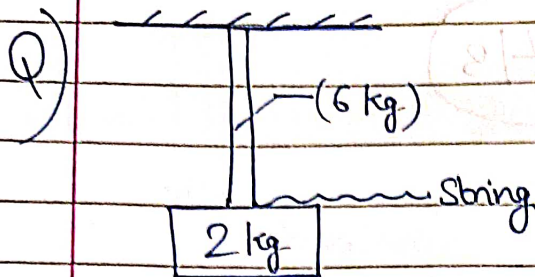 Q)
(6 kg)
String
2 kg